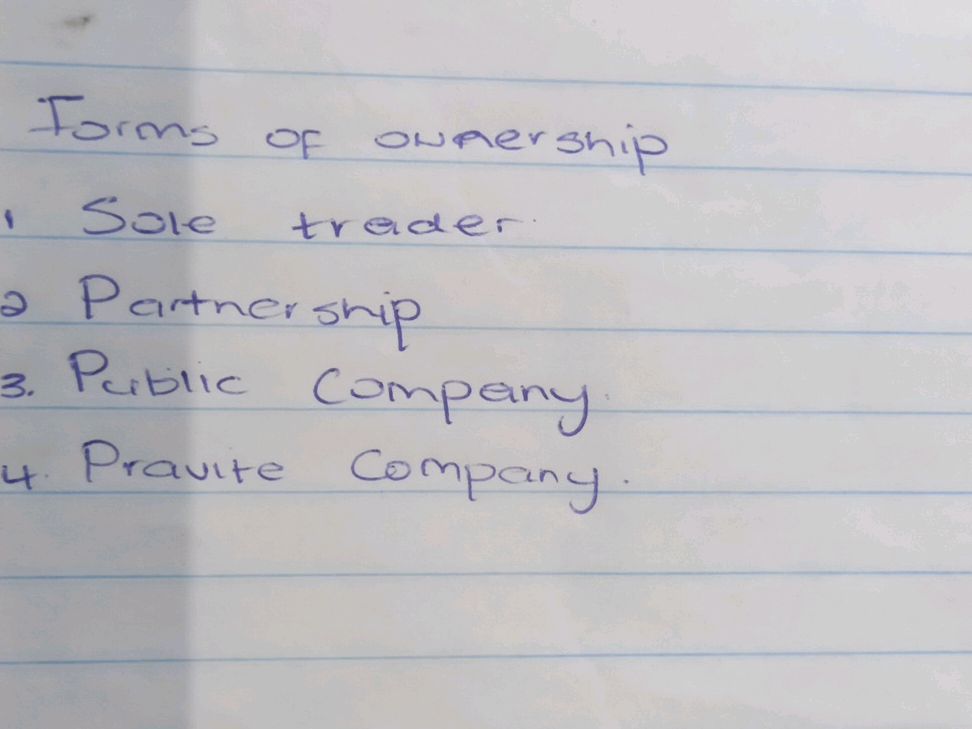 Forms of ownership
1 Sole trader.
2 Partnership
3. Public Company.
4. Pravite Company.